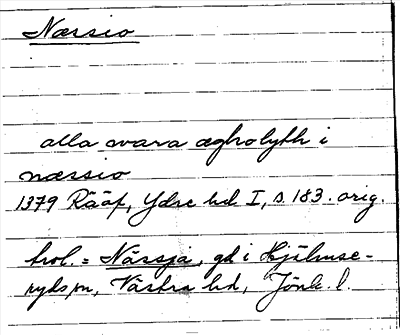 Næssio
alla wara ægholyth i
næssio
1379 Rääf, Ydre hd I, s. 183. orig.
trol. = Nässja, gd i Hjälmse-
ryds sn, Västra hd, Jönk. l.